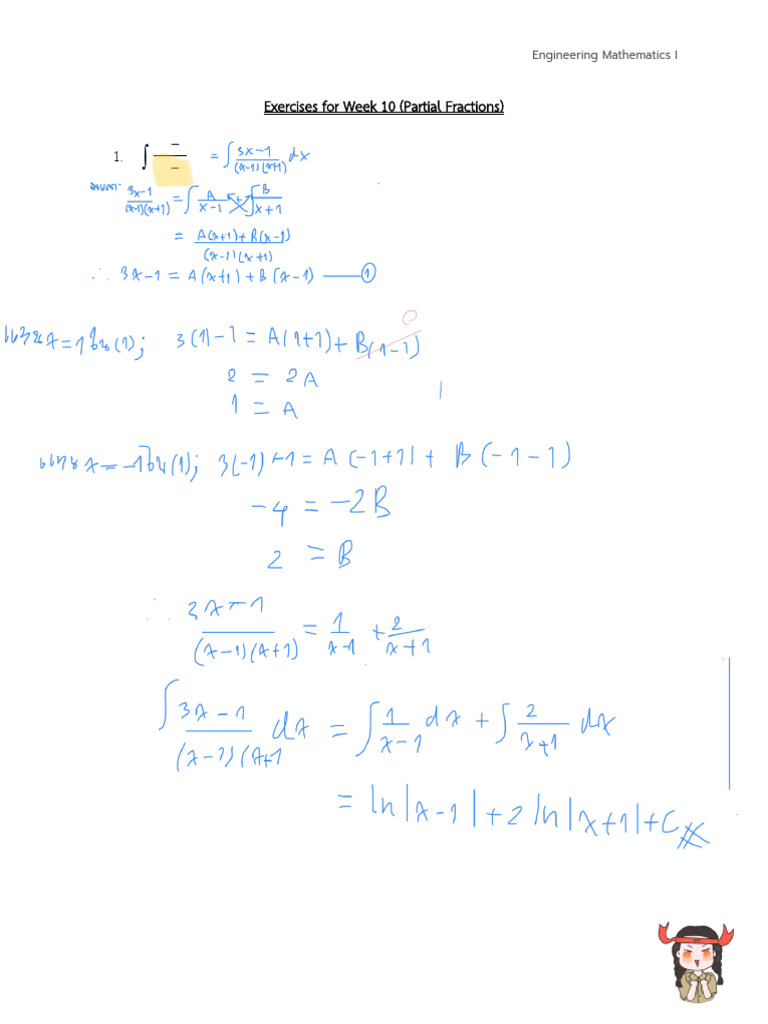 Engineering Mathematics I
Exercises for Week 10 (Partial Fractions)
1. ∫ — = ∫ (3x-1)/((x-1)(x+1)) dx
(3x-1)/((x-1)(x+1)) = ∫ A/(x-1) + ∫ B/(x+1)
= (A(x+1)+B(x-1))/((x-1)(x+1))
∴ 3x-1 = A(x+1)+B(x-1) —— ①
0
แทน x=1 ใน (1); 3(1)-1 = A(1+1)+B(1-1)
2 = 2A
1 = A
แทน x=-1 ใน (1); 3(-1)-1 = A(-1+1)+B(-1-1)
-4 = -2B
2 = B
∴ (3x-1)/((x-1)(x+1)) = 1/(x-1) + 2/(x+1)
∫ (3x-1)/((x-1)(x+1 dx = ∫ 1/(x-1) dx + ∫ 2/(x+1) dx
= ln|x-1|+2 ln|x+1|+C